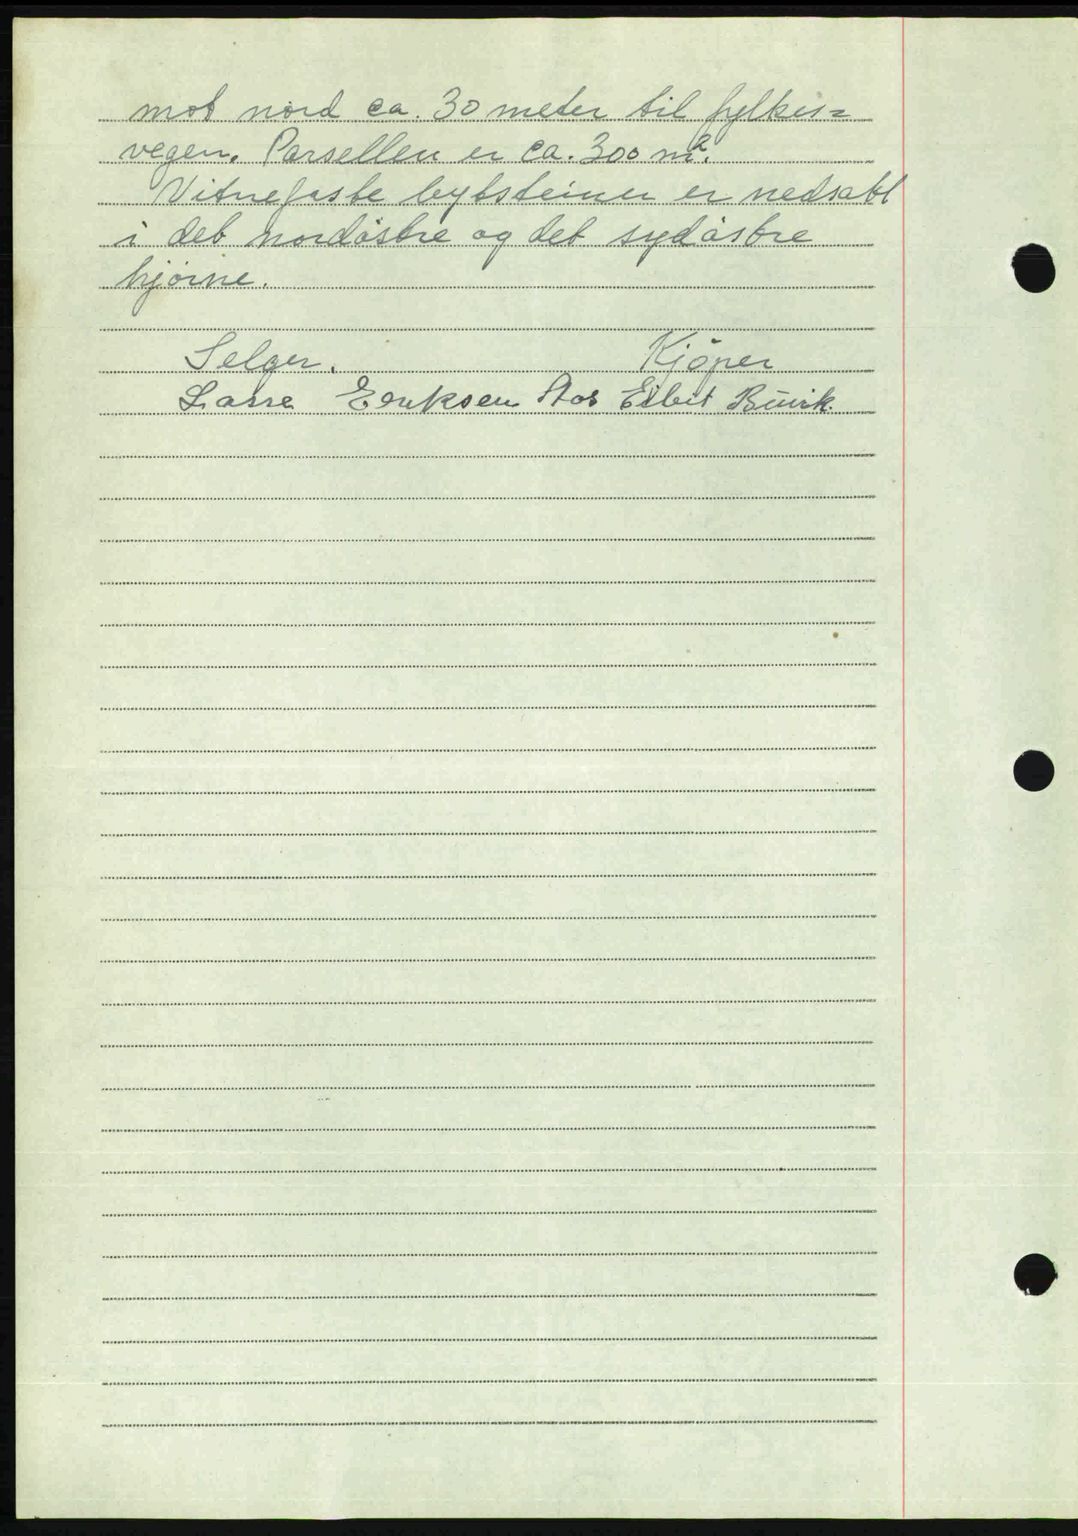 mot nord ca. 30 meter til fylkes=
vegen. Parsellen er ca. 300 m².
Vitnefaste bytsteiner er nedsatt
i det nordöstre og det sydöstre
hjörne.
Selger. Kjöper
Lasse Eriksen Eilert